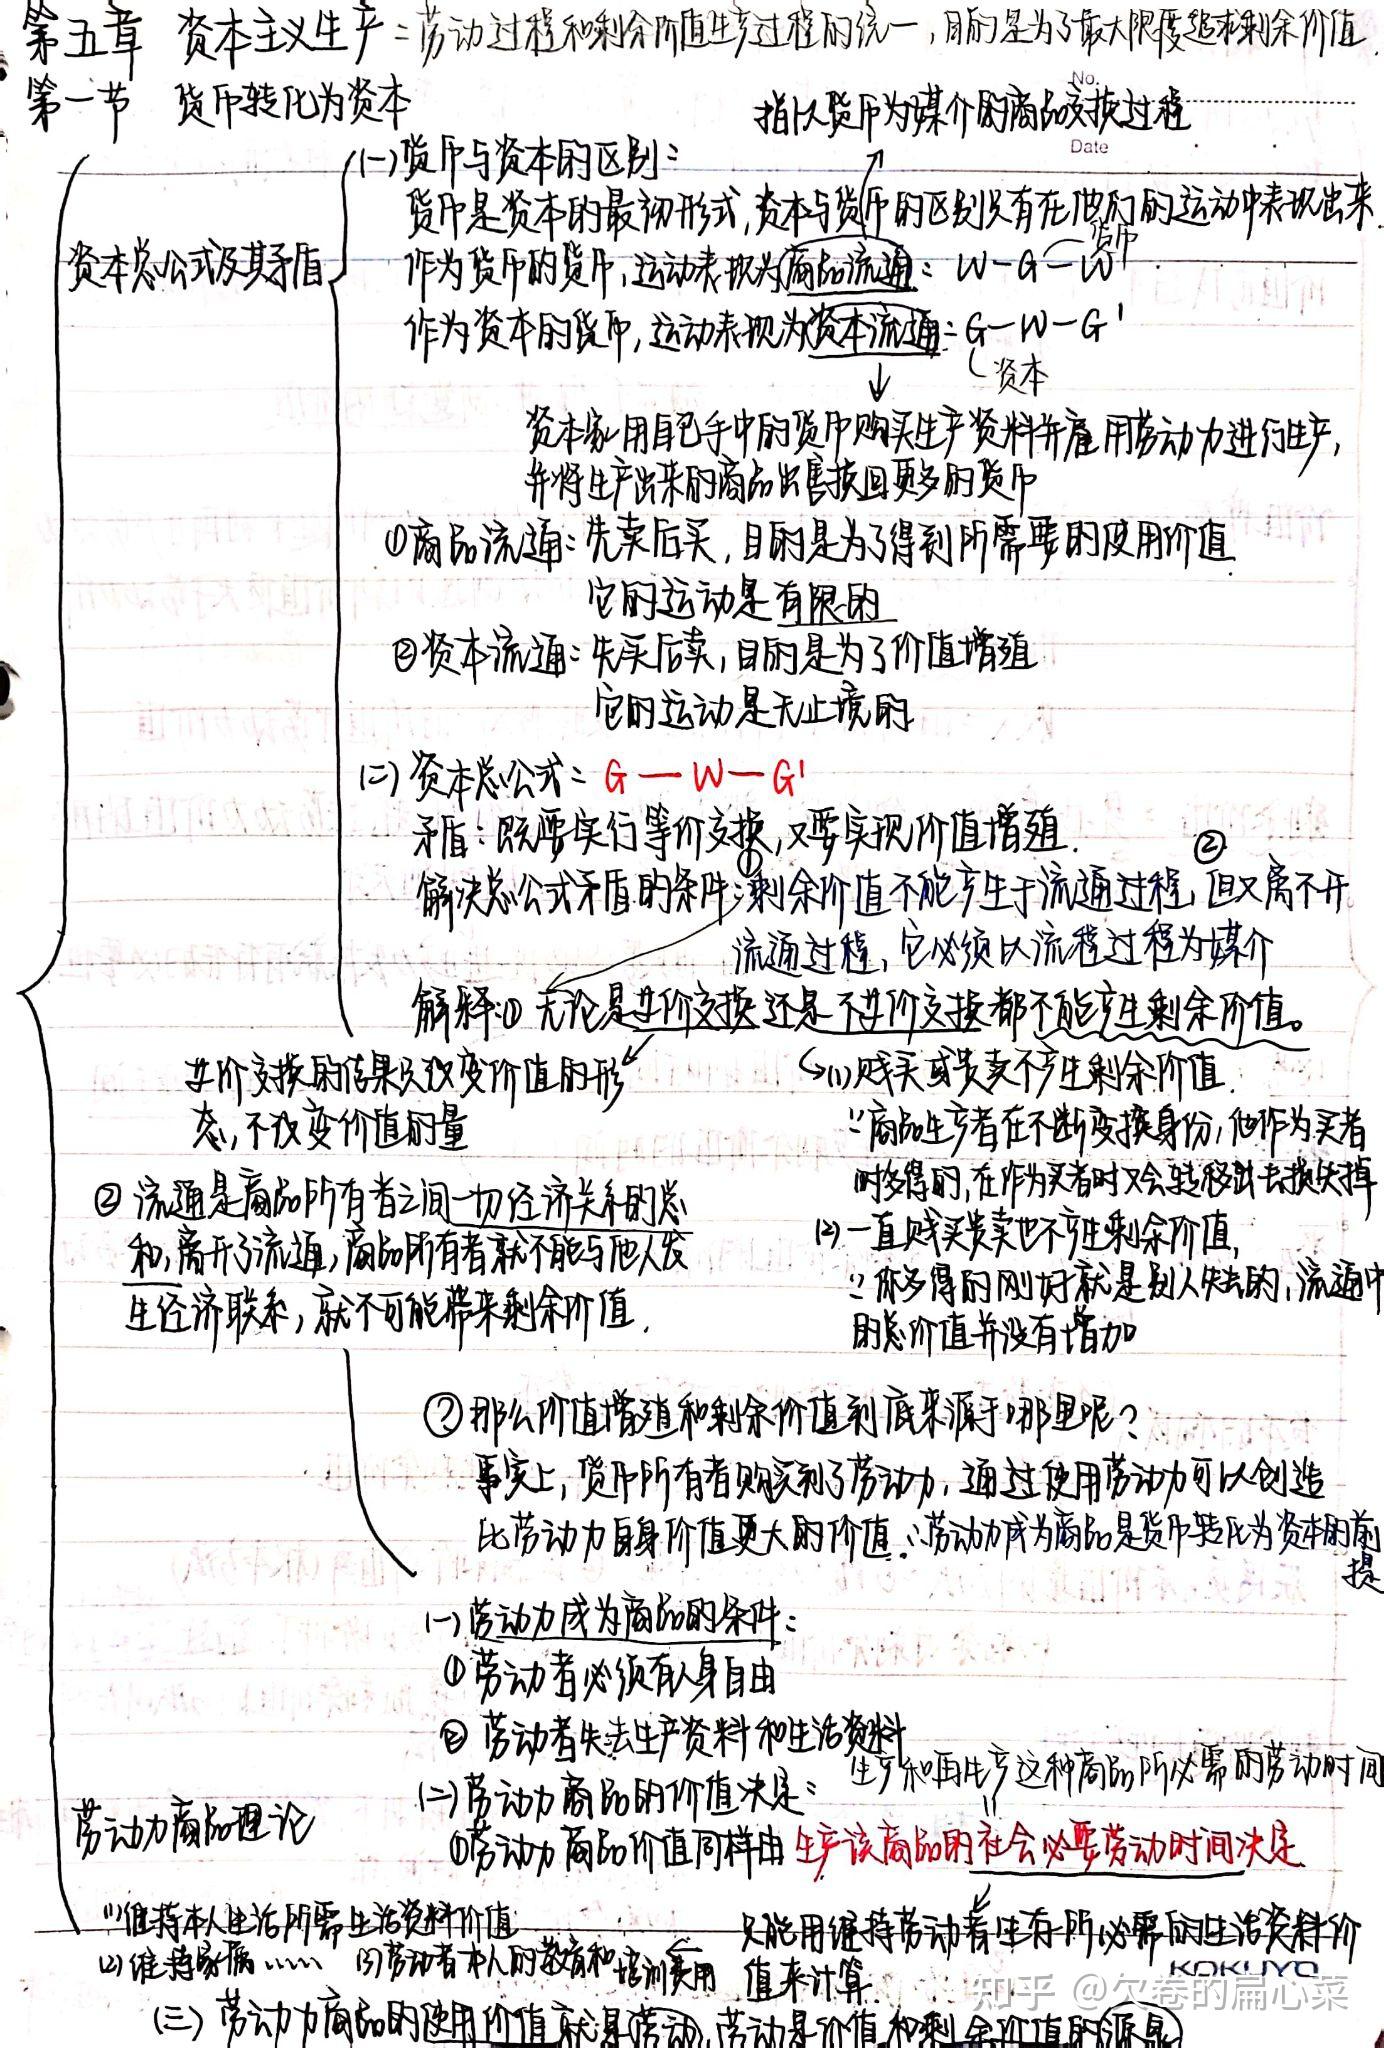 第五章 资本主义生产：劳动过程和剩余价值生产过程的统一，目的是为了最大限度追求剩余价值.
第一节 货币转化为资本
No.
指以货币为媒介的商品交换过程
Date
(一)货币与资本的区别：
货币是资本的最初形式，资本与货币的区别只有在他们的运动中表现出来
货币
资本总公式及其矛盾
作为货币的货币，运动表现为商品流通：W—G—W
作为资本的货币，运动表现为资本流通：G—W—G'
资本
资本家用自己手中的货币购买生产资料并雇用劳动力进行生产，
并将生产出来的商品出售换回更多的货币
①商品流通：先卖后买，目的是为了得到所需要的使用价值
它的运动是有限的
②资本流通：先买后卖，目的是为了价值增殖
它的运动是无止境的
(二)资本总公式：G—W—G'
矛盾：既要实行等价交换，又要实现价值增殖.
① ②
解决总公式矛盾的条件：剩余价值不能产生于流通过程，但又离不开
流通过程，它必须以流程过程为媒介
解释：① 无论是等价交换还是不等价交换都不能产生剩余价值。
等价交换的结果只改变价值的形
态，不改变价值的量
(1)贱买或贵卖不产生剩余价值.
∵商品生产者在不断变换身份，他作为买者
时多得的，在作为卖者时又会转移出去损失掉
② 流通是商品所有者之间一切经济关系的总
和，离开了流通，商品所有者就不能与他人发
生经济联系，就不可能带来剩余价值.
(2)一直贱买贵卖也不产生剩余价值，
∵你多得的刚好就是别人失去的，流通中
的总价值并没有增加
? 那么价值增殖和剩余价值到底来源于哪里呢？
事实上，货币所有者购买到了劳动力，通过使用劳动力可以创造
比劳动力自身价值更大的价值.∴劳动力成为商品是货币转化为资本的前
提
(一)劳动力成为商品的条件：
① 劳动者必须有人身自由
② 劳动者失去生产资料和生活资料
生产和再生产这种商品所必需的劳动时间
(二)劳动力商品的价值决定：
劳动力商品理论
①劳动力商品价值同样由生产该商品的社会必要劳动时间决定
(1)维持本人生活所需生活资料价值
只能用维持劳动者生存所必需的生活资料价
(2)维持家属…… (3)劳动者本人的教育和培训费用
值来计算.
KOKUYO
知乎 @欠卷的扁心菜
(三)劳动力商品的使用价值就是劳动，劳动是价值和剩余价值的源泉